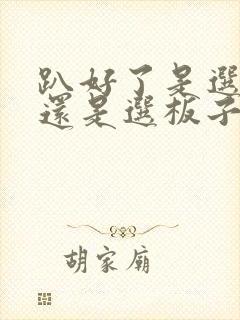 趴好了是選
還是選板子
胡家廟